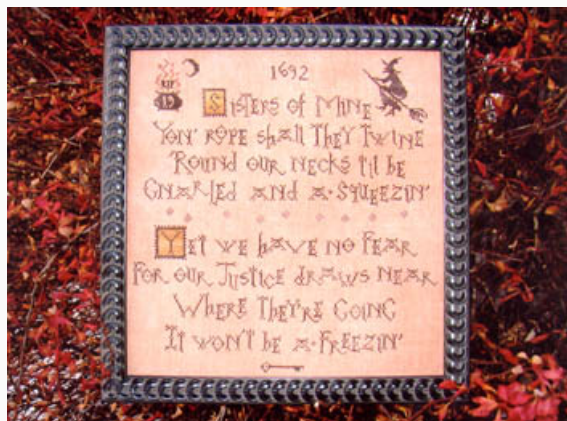 1692
Sisters of Mine
Yon' rope shall They Twine
'Round our necks til be
Gnarled and a-Squeezin'
Yet we have no fear
For our Justice draws near
Where They're Going
It won't be a-Freezin'